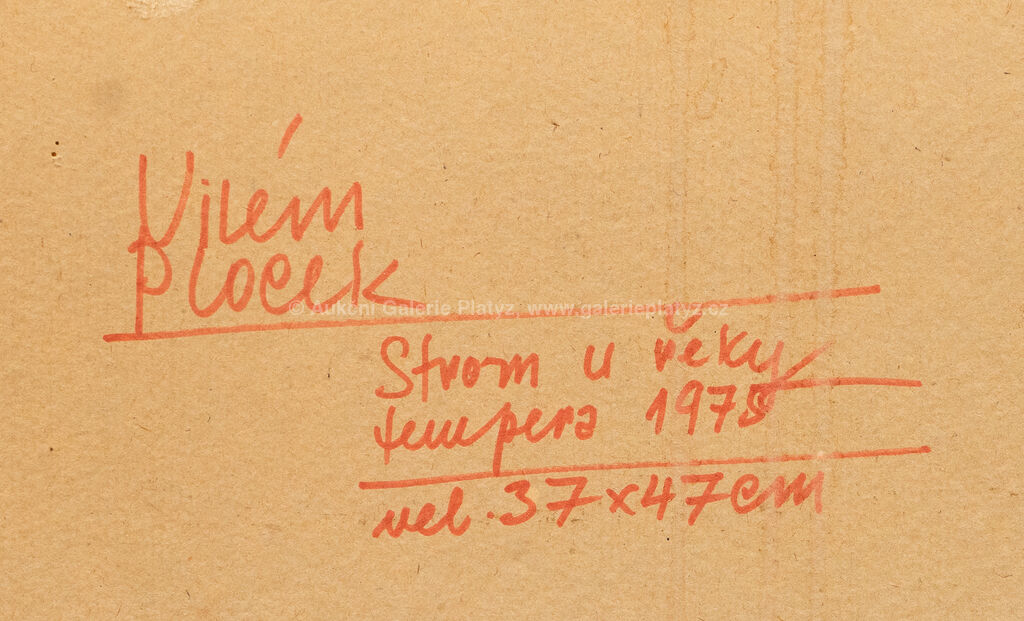 Vilém
Plocek
© Aukční Galerie Platýz, www.galerieplatyz.cz
Strom u řeky
tempera 1975
vel. 37x47cm